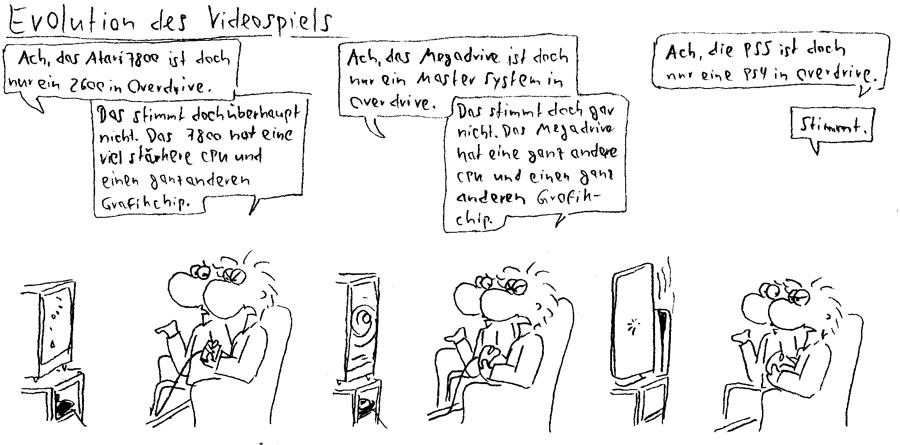 Evolution des Videospiels
Ach, das Atari 7800 ist doch
nur ein 2600 in Overdrive.
Das stimmt doch überhaupt
nicht. Das 7800 hat eine
viel stärkere CPU und
einen ganz anderen
Grafikchip.
Ach, das Megadrive ist doch
nur ein Master System in
Overdrive.
Das stimmt doch gar
nicht. Das Megadrive
hat eine ganz andere
CPU und einen ganz
anderen Grafik-
chip.
Ach, die PS5 ist doch
nur eine PS4 in overdrive.
Stimmt.